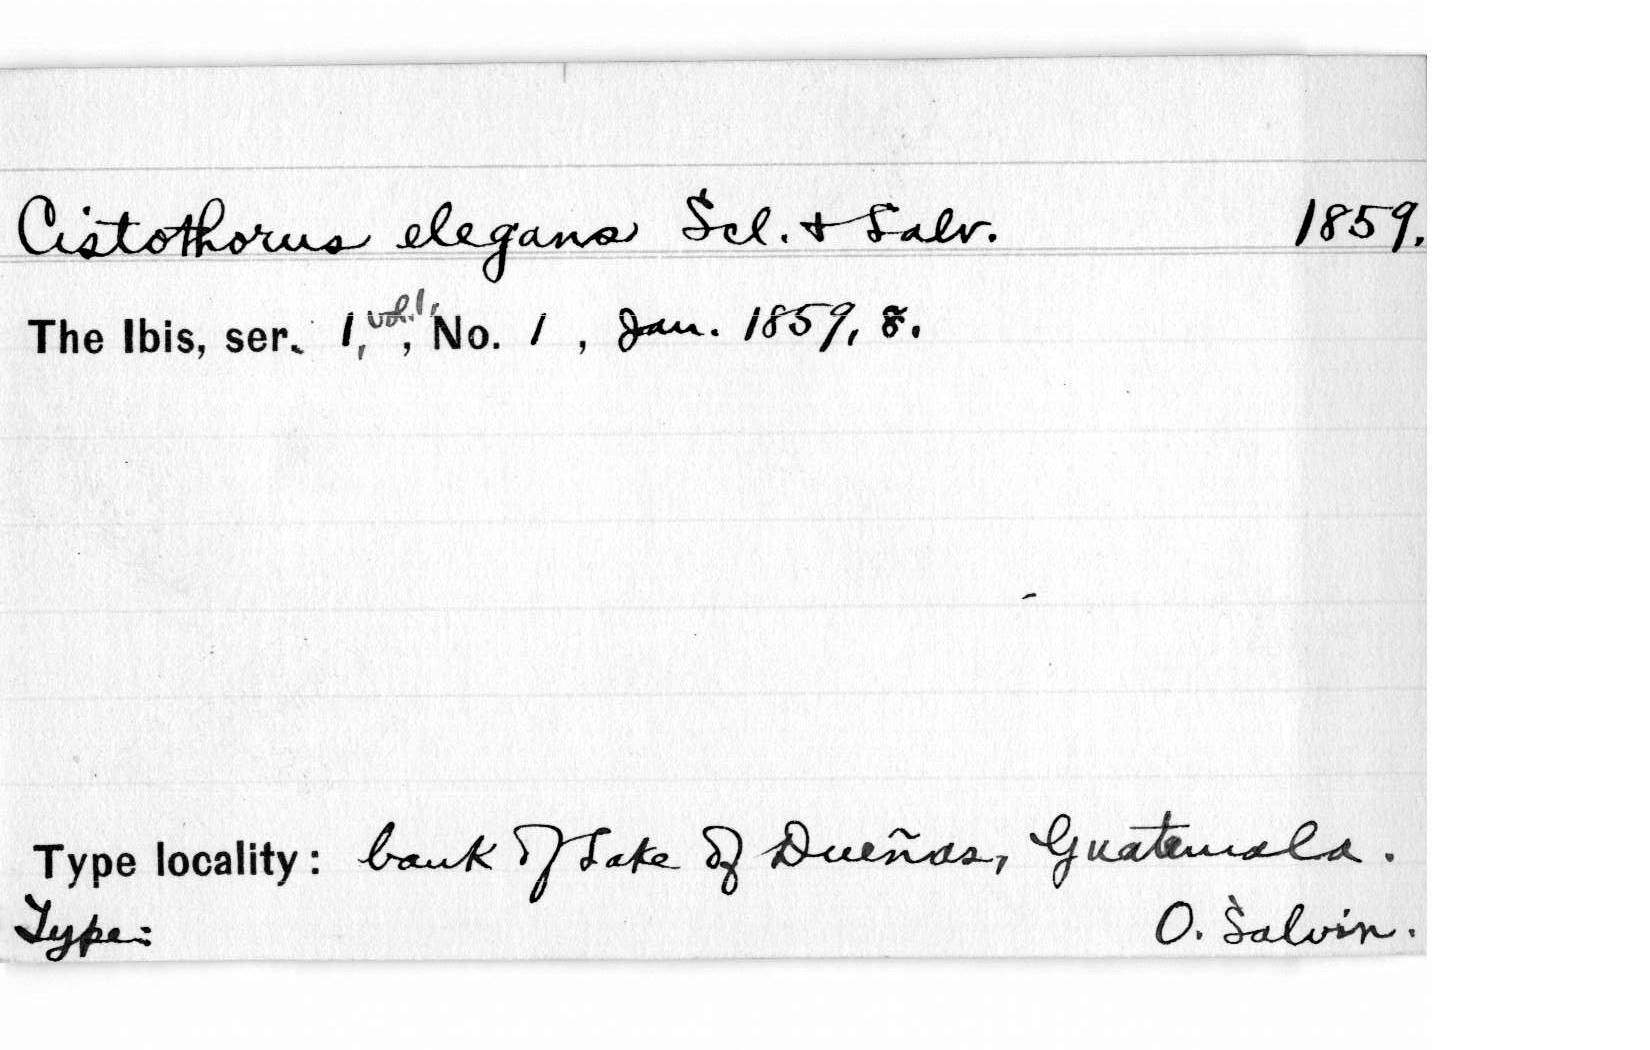 Cistothorus elegans Scl. & Salv. 1859.
The Ibis, ser. 1, vol. 1, , No. 1 , Jan. 1859, 8.
Type locality: bank of Lake of Dueñas, Guatemala.
Type: O. Salvin.